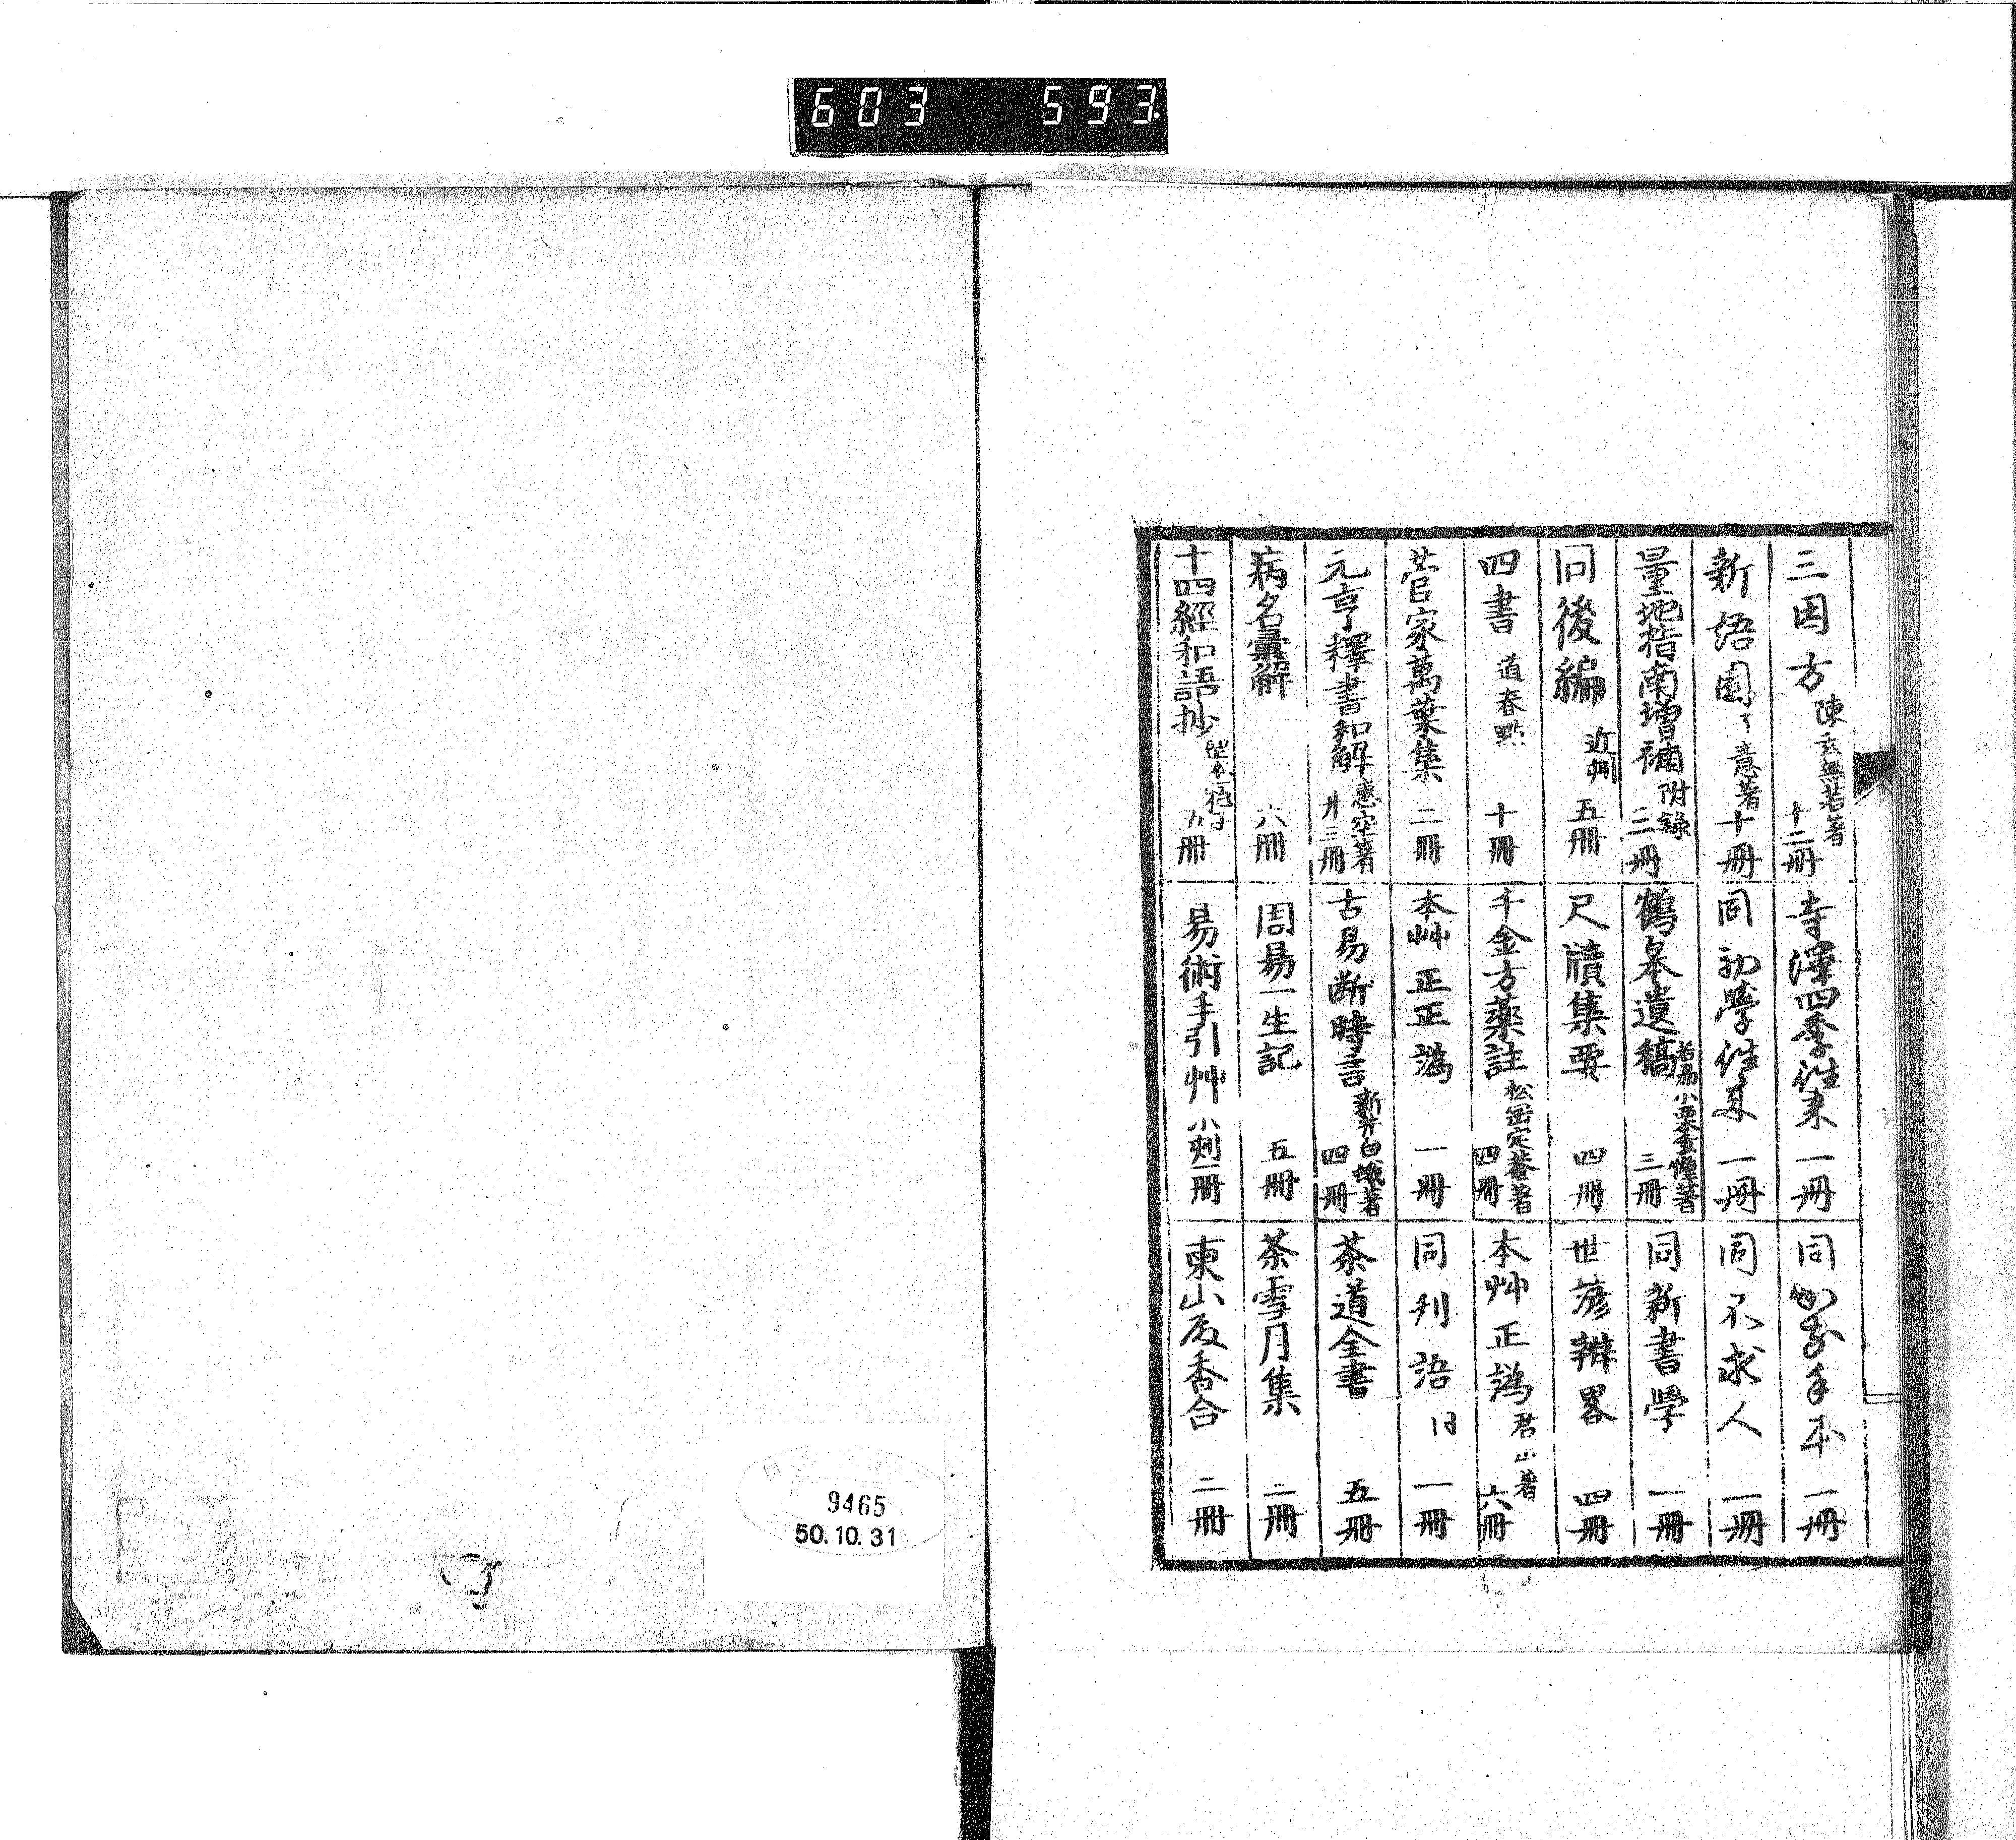 603 593
三因方 陳無著 十二冊
新語園 了意著 十冊
量地指南増補 附録 三冊
同後編 近刻 五冊
四書 道春點 十冊
菅家萬葉集 二冊
元亨釋書和解 惠空著 廾三冊
病名彙解 六冊
十四經和語抄 冊
寺澤四季徃来 一冊
同初學徃来 一冊
鶴皐遺稿 小栗著 三冊
尺牘集要 四冊
千金方藥註 松岡定菴著 四冊
本艸正正譌 一冊
古易断時言 新井白蛾著 四冊
周易一生記 五冊
易術手引艸 小刻一冊
同手本 一冊
同不求人 一冊
同新書學 一冊
世諺辨畧 四冊
本艸正譌 君山著 六冊
同刊語 一冊
茶道全書 五冊
茶雪月集 二冊
東山殿香合 二冊
9465
50.10.31